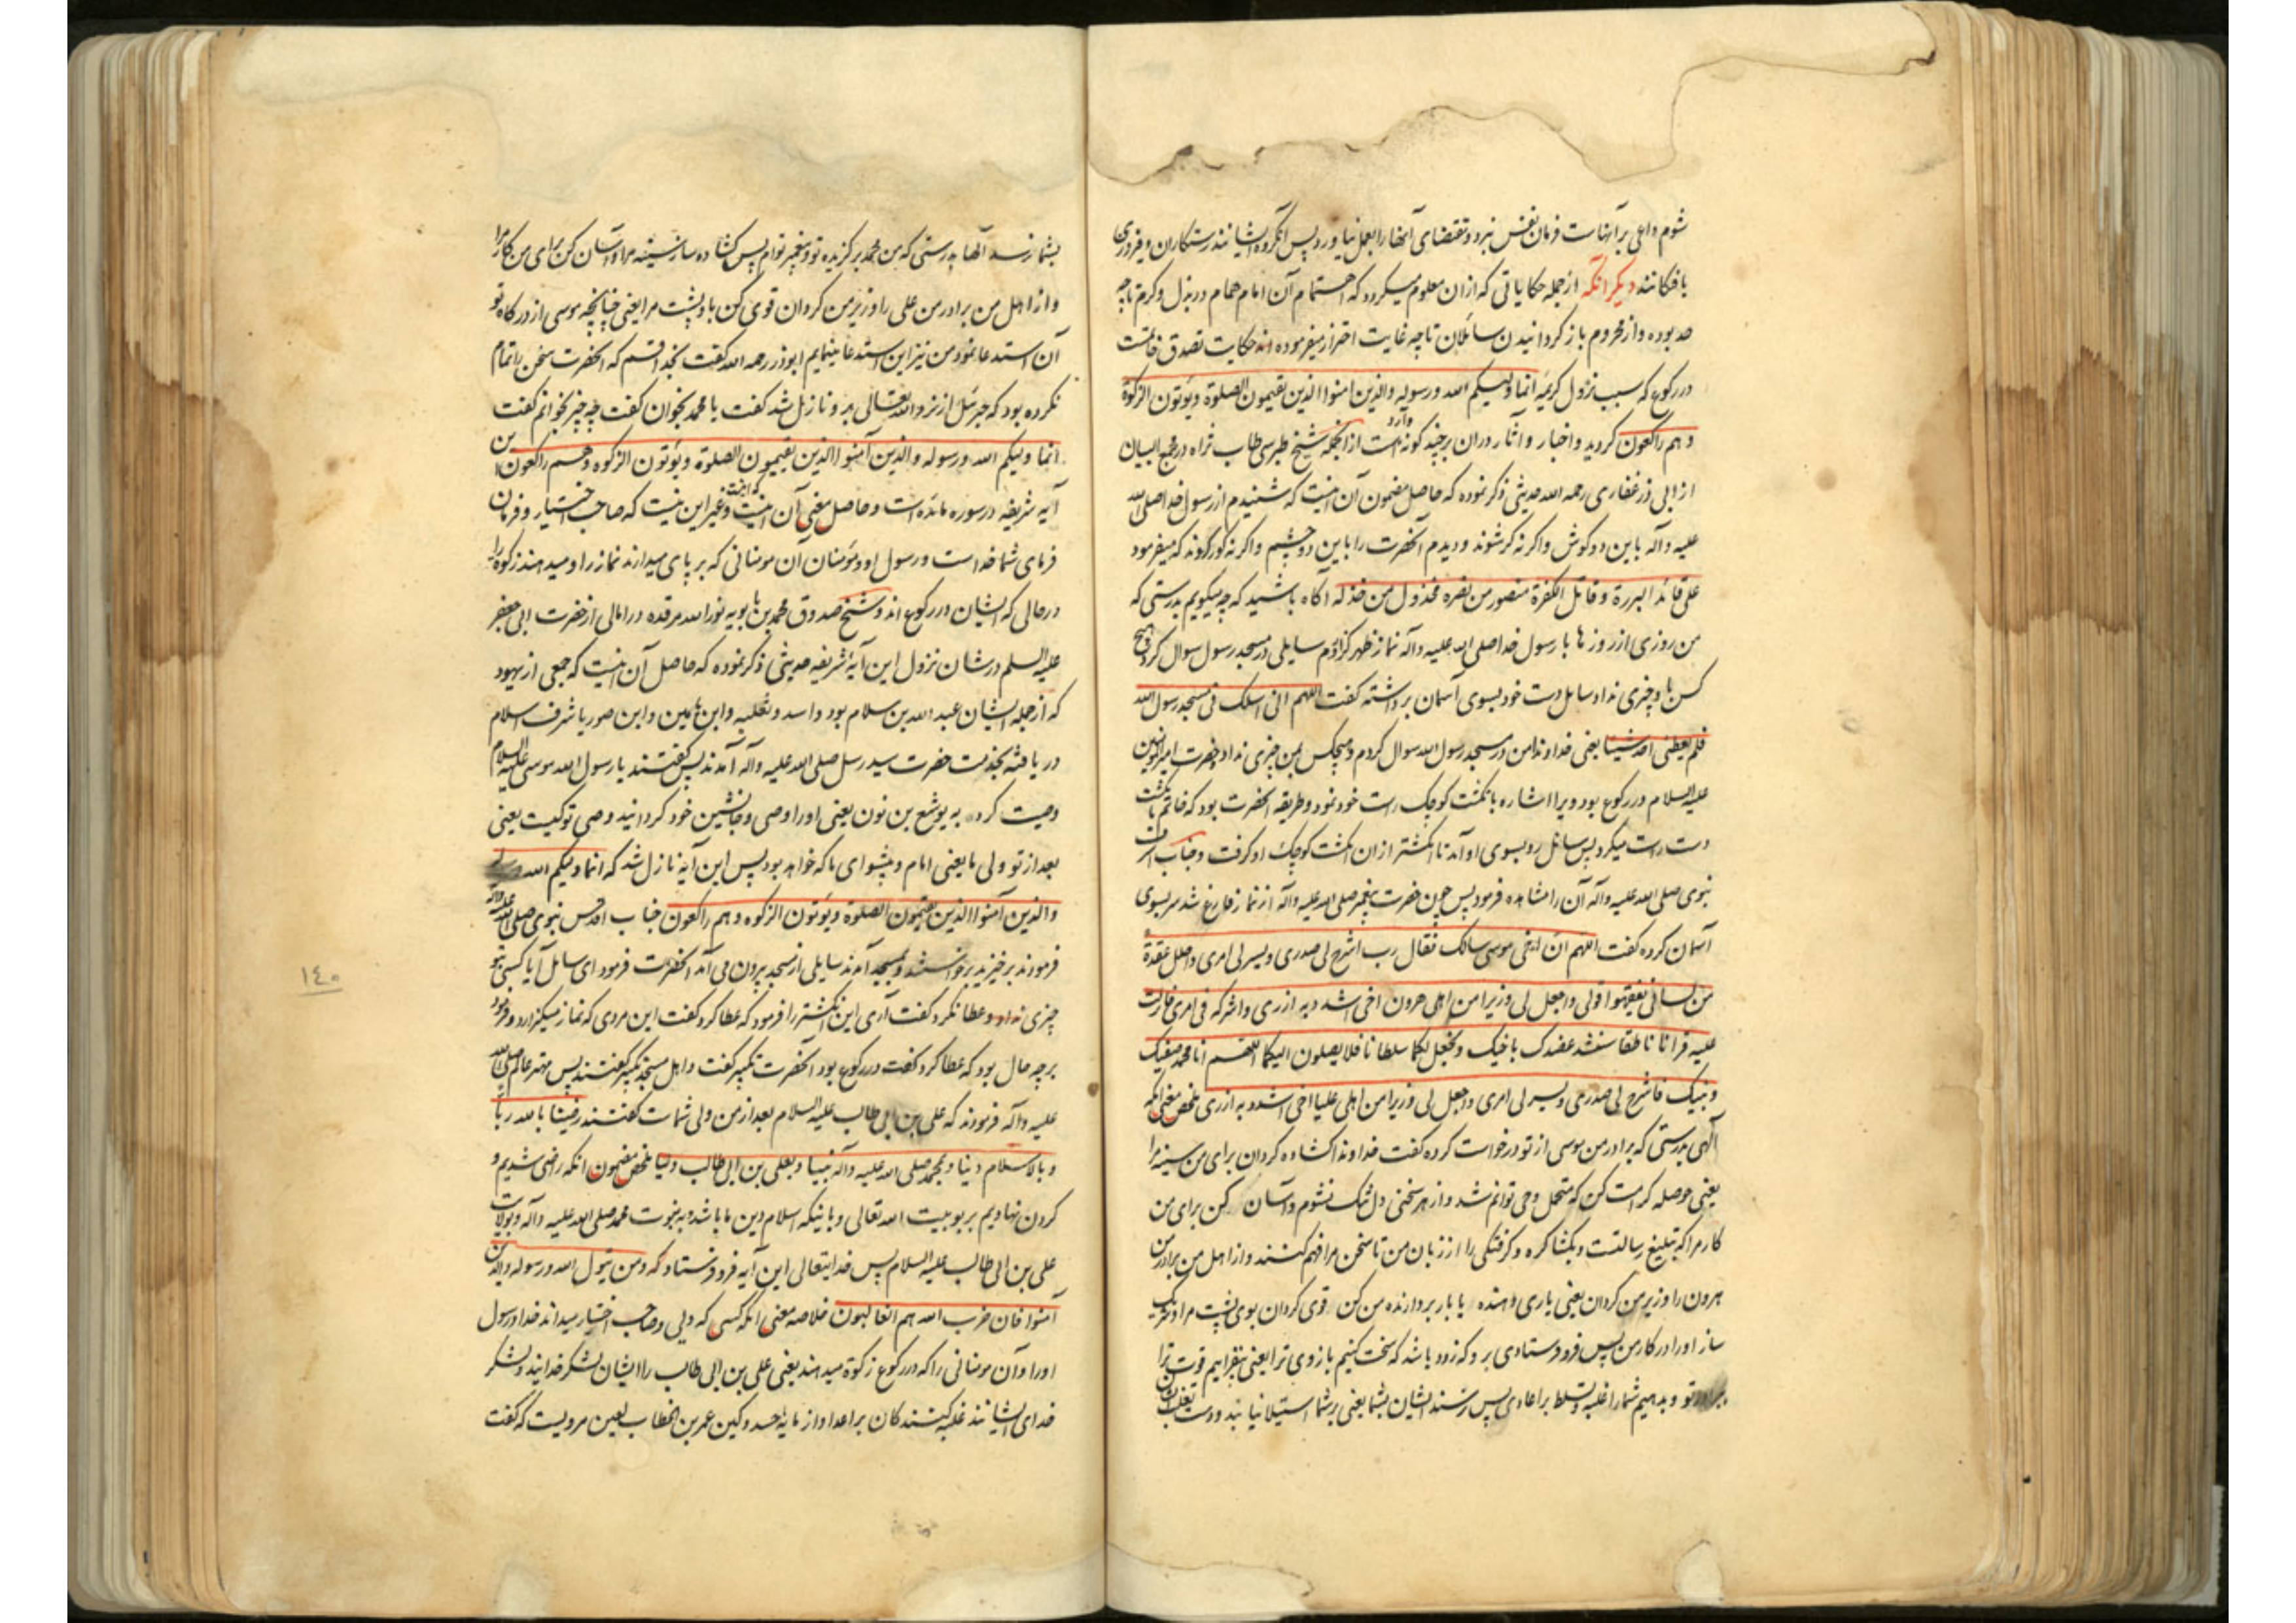 شوم داعی بر آنهاست فرمان نفس نبرد و مقتضای آنها را بعمل نیاورد پس آنگروه ایشانند رستکاران و فیروزی
یافتکانند دیکر آنکه ازجمله حکایاتی که ازان معلوم میکردد که اهتمام آن امام همام در بذل و کرم تا چه
حد بوده و از محروم باز کردانیدن سائلان تا چه غایت احتراز میفرموده اند حکایت تصدق خاتمست
در رکوع که سبب نزول کریمه انما ولیکم الله و رسوله والذین امنوا الذین یقیمون الصلوة ویؤتون الزکوة
و هم راکعون کردید و اخبار و آثار دران برچند کونه وارد است از آنجمله شیخ طبرسی طاب ثراه در مجمع البیان
از ابی ذر غفاری رحمه الله حدیثی ذکر نموده که حاصل مضمون آن اینست که شنیدم از رسول خدا صلی الله
علیه وآله باین دو کوش و اکر نه کر شوند و دیدم آنحضرت را باین دو چشم و اکر نه کور کردند که میفرمود
علی قائد البررة وقاتل الکفرة منصور من نصره مخذول من خذله آکاه باشید که چه میکویم بدرستی که
من روزی از روزها با رسول خدا صلی الله علیه وآله نماز ظهر کزاردم سایلی در مسجد رسول سوال کرد و هیچ
کس باو چیزی نداد سایل دست خود بسوی آسمان برداشته کفت اللهم انی اسئلک فی مسجد رسول الله
فلم یعطنی احد شیئا یعنی خداوندا من در مسجد رسول الله سوال کردم و هیچکس بمن چیزی نداد و حضرت امیرالمومنین
علیه السلام در رکوع بود ویرا اشاره بانکشت کوچک راست خود نمود و طریقه آنحضرت بود که خاتم بانکشت
دست راست میکرد پس سائل رو بسوی او آمد تا انکشتر از ان انکشت کوچک او کرفت و جناب اشرف
نبوی صلی الله علیه وآله آن را مشاهده فرمود پس چون حضرت پیغمبر صلی الله علیه وآله از نماز فارغ شد سر بسوی
آسمان کرده کفت اللهم ان اخی موسی سالک فقال رب اشرح لی صدری ویسر لی امری واحلل عقدة
من لسانی یفقهوا قولی واجعل لی وزیرا من اهلی هرون اخی اشدد به ازری واشرکه فی امری فانزلت
علیه قرانا ناطقا سنشد عضدک باخیک ونجعل لکما سلطانا فلا یصلون الیکما اللهم انا محمد صفیک
ونبیک فاشرح لی صدری ویسر لی امری واجعل لی وزیرا من اهلی علیا اخی اشدد به ازری ملخص معنی آنکه
الهی بدرستی که برادر من موسی از تو درخواست کرده کفت خداوندا کشاده کردان برای من سینه مرا
یعنی حوصله کرامت کن که متحمل وحی توانم شد و از هر سخنی دل تنک نشوم و آسان کن برای من
کار مرا که تبلیغ رسالتست و بکشا کره و کرفتکی را از زبان من تا سخن مرا فهم کنند و از اهل من برادر من
هرون را وزیر من کردان یعنی یاری دهنده یا بار بردارنده من کن قوی کردان بوی پشت مرا و شریک
ساز او را در کار من پس فرو فرستادی برو که زود باشد که سخت کنیم بازوی ترا یعنی بیفزاییم قوت ترا
ببرادر تو و بدهیم شما را غلبه و تسلط بر اعادی پس نرسند ایشان بشما یعنی بر شما استیلا نیابند و دست
بشما نرسد آنها بدرستی که من محمد برکزیده تو و پیغمبر توام پس کشاده ساز سینه مرا و آسان کن برای من کار مرا
و از اهل من برادر من علی را وزیر من کردان قوی کن باو پشت مرا یعنی چنانچه موسی از درکاه تو
آن استدعا نمود من نیز این استدعا مینمایم ابوذر رحمه الله کفت بخدا قسم که آنحضرت سخن را تمام
نکرده بود که جبرئیل از نزد الله تعالی برو نازل شد کفت یا محمد بخوان کفت چه چیز بخوانم کفت
انما ولیکم الله ورسوله والذین آمنوا الذین یقیمون الصلوة ویؤتون الزکوه وهم راکعون این
آیه شریفه در سوره مائده است و حاصل معنی آن اینست که اینست و غیر این نیست که صاحب اختیار و فرمان
فرمای شما خداست و رسول او و مومنان آن مومنانی که بر پای میدارند نماز را و میدهند زکوة را
در حالی که ایشان در رکوع اند و شیخ صدوق محمد بن بابویه نور الله مرقده در امالی از حضرت ابی جعفر
علیه السلم در شان نزول این آیه شریفه حدیثی ذکر نموده که حاصل آن اینست که جمعی از یهود
که از جمله ایشان عبد الله بن سلام بود و اسد و ثعلبه و ابن یامین و ابن صوریا شرف اسلام
دریافته بخدمت حضرت سید رسل صلی الله علیه وآله آمدند پس کفتند یا رسول الله موسی علیه السلام
وصیت کرد به یوشع بن نون یعنی او را وصی و جانشین خود کردانید وصی تو کیست یعنی
بعد از تو ولی ما یعنی امام و پیشوای ما که خواهد بود پس این آیه نازل شد که انما ولیکم الله ورسوله
والذین آمنوا الذین یقیمون الصلوة ویؤتون الزکوه وهم راکعون جناب اقدس نبوی صلی الله علیه وآله
فرمودند برخیزید برخواستند و بمسجد آمدند سایلی از مسجد بیرون می آمد آنحضرت فرمود ای سایل آیا کسی بتو
چیزی نداد و عطا نکرد کفت آری این انکشتر را فرمود که عطا کرد کفت این مردی که نماز میکزارد و فرمود
بر چه حال بود که عطا کرد کفت در رکوع بود آنحضرت تکبیر کفت و اهل مسجد تکبیر کفتند پس مهتر عالم صلی الله
علیه وآله فرمودند که علی بن ابی طالب علیه السلام بعد از من ولی شماست کفتند رضینا بالله ربا
وبالاسلام دینا وبمحمد صلی الله علیه وآله نبیا وبعلی بن ابی طالب ولیا ملخص مضمون آنکه راضی شدیم و
کردن نهادیم بربوبیت الله تعالی و باینکه اسلام دین ما باشد و به نبوت محمد صلی الله علیه وآله و بولایت
علی بن ابی طالب علیه السلام پس خدایتعالی این آیه فرو فرستاد که ومن یتول الله ورسوله والذین
آمنوا فان حزب الله هم الغالبون خلاصه معنی آنکه کسی که ولی و صاحب اختیار میداند خدا و رسول
او را و آن مومنانی را که در رکوع زکوة میدهند یعنی علی بن ابی طالب را ایشان لشکر خدایند و لشکر
خدای ایشانند غلبه کنندکان بر اعدا و از مایه حسد و کین عمر بن الخطاب لعین مرویست که کفت
١٤٠